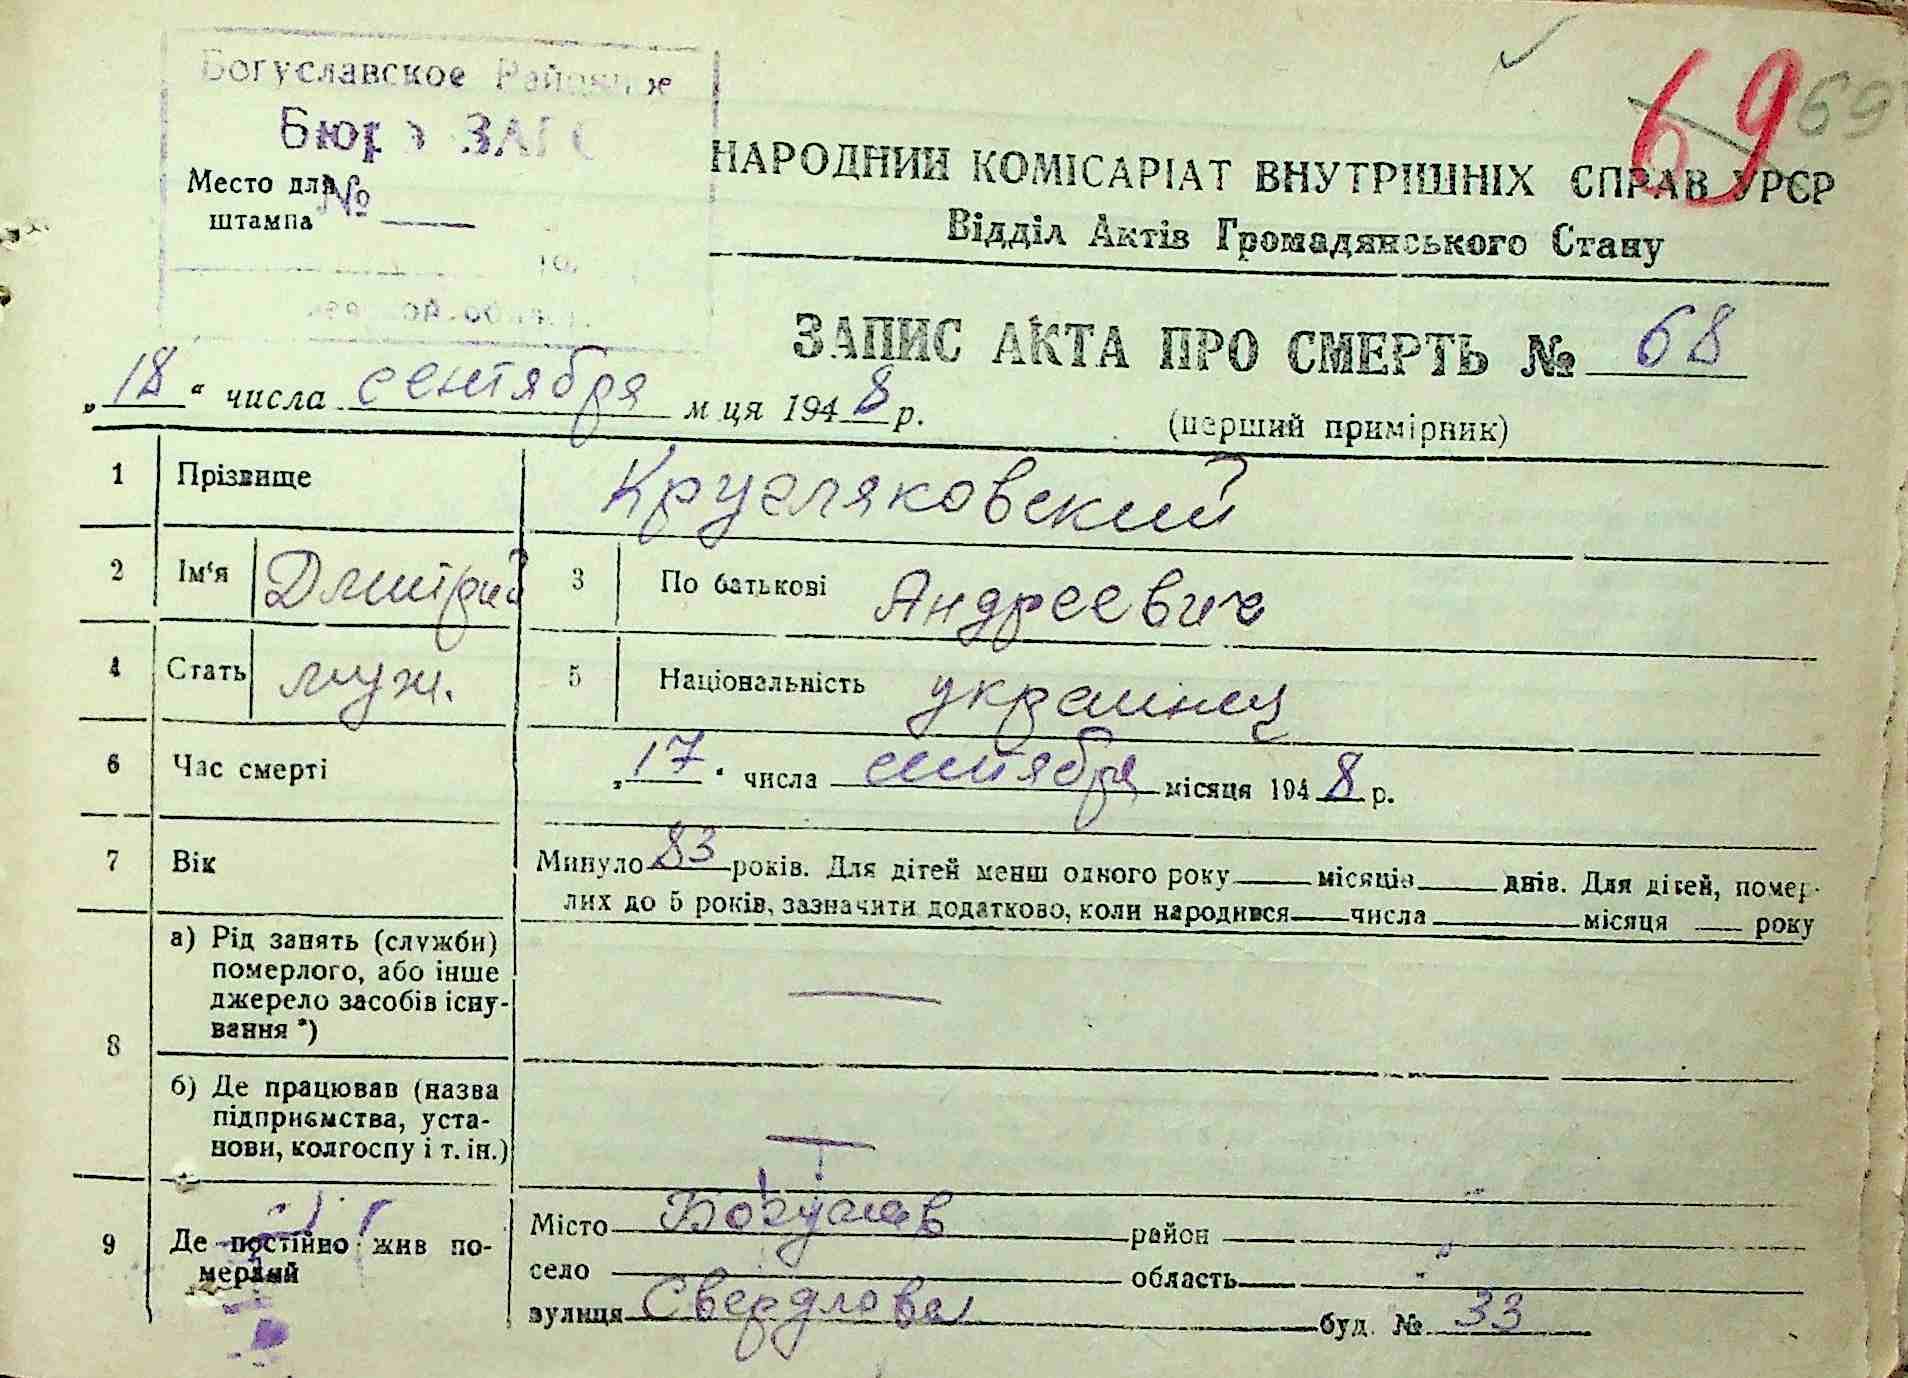 Богуславское Районное
Бюро ЗАГС
Место для
штампа
№
69 69
НАРОДНИЙ КОМІСАРІАТ ВНУТРІШНІХ СПРАВ УРСР
Відділ Актів Громадянського Стану
ЗАПИС АКТА ПРО СМЕРТЬ № 68
„18“ числа сентября м ця 1948 р.
(перший примірник)
1 Прізвище Кругляковский
2 Ім‘я Дмитрий 3 По батькові Андреевич
4 Стать муж. 5 Національність украинец
6 Час смерті „17“ числа сентября місяця 1948 р.
7 Вік Минуло 83 років. Для дітей менш одного року місяців днів. Для дітей, помер-
лих до 5 років, зазначити додатково, коли народився числа місяця року
8 а) Рід занять (служби)
померлого, або інше
джерело засобів існу-
вання *)
б) Де працював (назва
підприємства, уста-
нови, колгоспу і т. ін.)
9 Де постійно жив по-
мерлий
Місто Богуслав район
село область
вулиця Свердлова буд. № 33